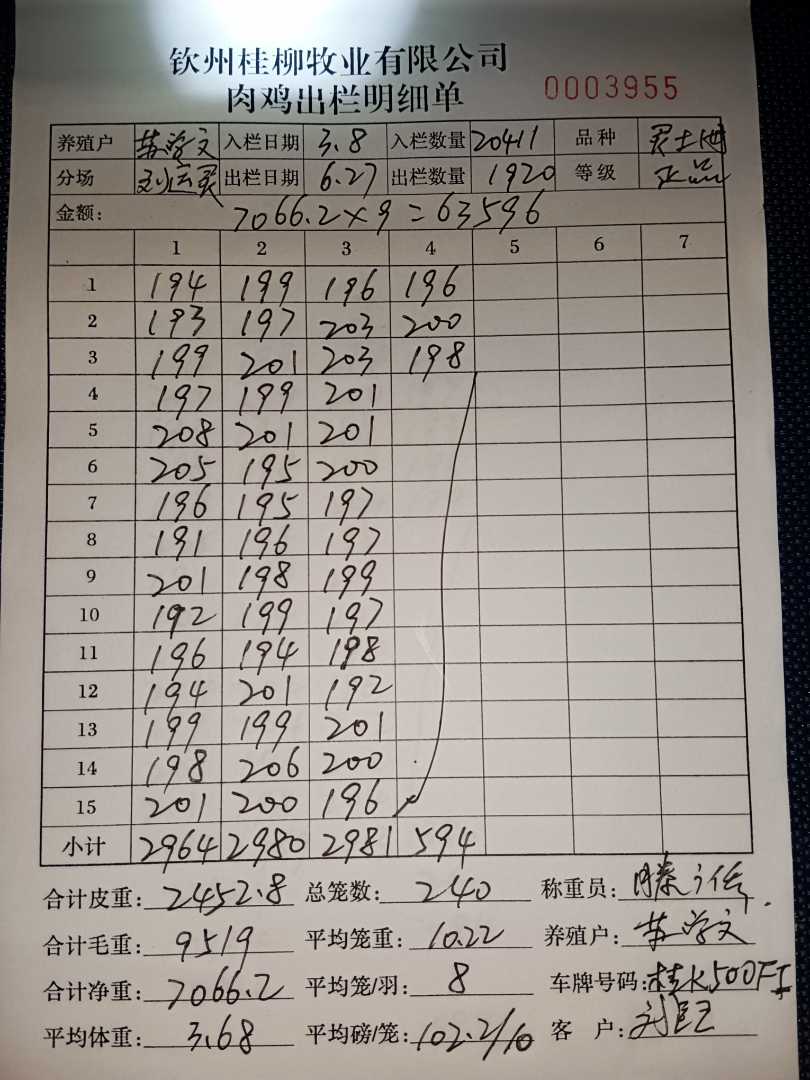 钦州桂柳牧业有限公司
肉鸡出栏明细单 0003955
养殖户 苏学文 入栏日期 3.8 入栏数量 20411 品种
分场 刘运买 出栏日期 6.27 出栏数量 1920 等级 正品
金额: 7066.2×9=63596
1 2 3 4 5 6 7
1 194 199 196 196
2 193 197 203 200
3 199 201 203 198
4 197 199 201
5 208 201 201
6 205 195 200
7 196 195 197
8 191 196 197
9 201 198 199
10 192 199 197
11 196 194 198
12 194 201 192
13 199 199 201
14 198 206 200
15 201 200 196
小计 2964 2980 2981 594
合计皮重: 2452.8 总笼数: 240 称重员:
合计毛重: 9519 平均笼重: 10.22 养殖户: 苏学文
合计净重: 7066.2 平均笼/羽: 8 车牌号码: 桂K500FI
平均体重: 3.68 平均磅/笼: 102.2/10 客 户: